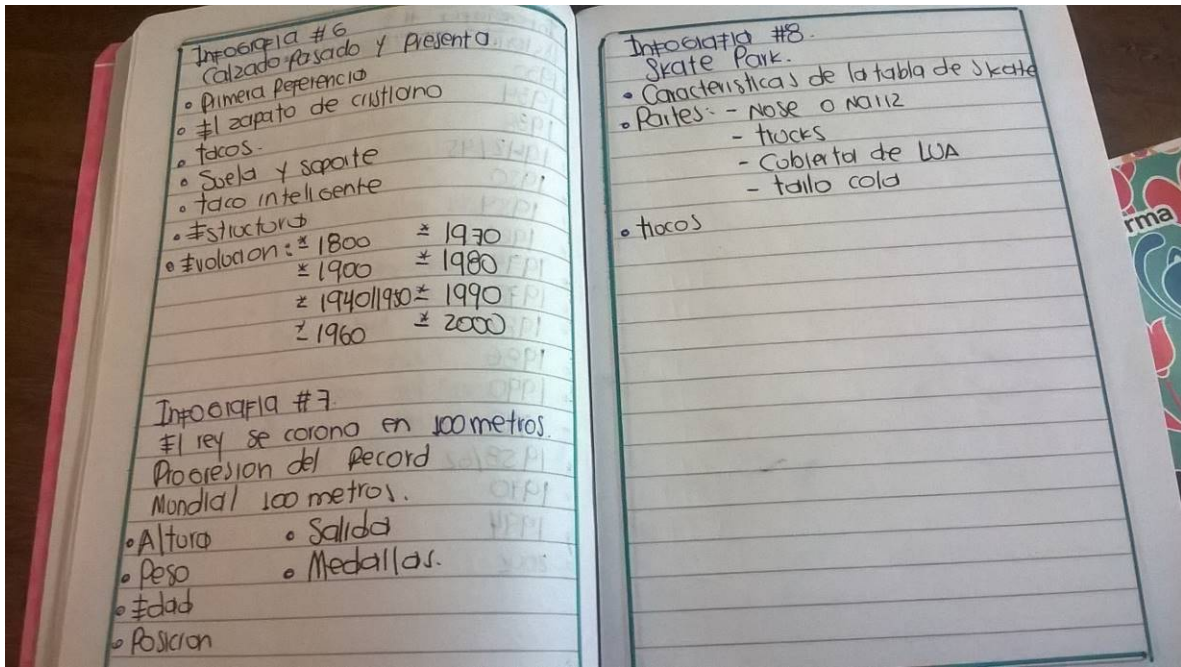 Infografia #6
Calzado Pasado y Presenta
• Primera Referencia
• El zapato de cristiano
• tacos.
• Suela y soporte
• taco inteligente
• Estructura
• Evolucion: * 1800 * 1970
* 1900 * 1980
* 1940/1950 * 1990
* 1960 * 2000
Infografia #7
El rey se corono en 100 metros.
Progresion del Record
Mundial 100 metros.
• Altura • Salida
• Peso • Medallas.
• Edad
• Posicion
Infografia #8.
Skate Park.
• Caracteristicas de la tabla de skate
• Partes: - Nose o Nariz
- trocks
- Cubierta de LIJA
- tailo cola
• trocos
rma